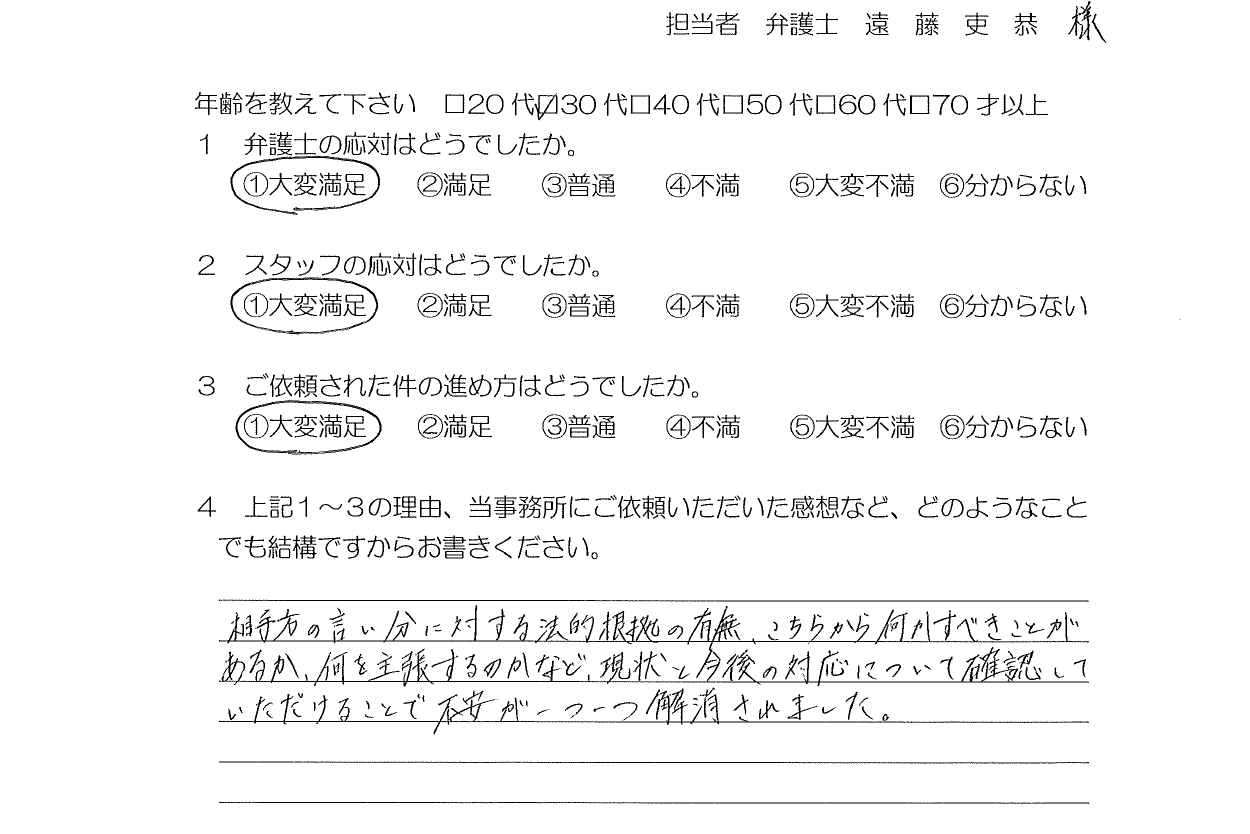 担当者 弁護士 遠 藤 吏 恭 様
年齢を教えて下さい □20代☑30代□40代□50代□60代□70才以上
1 弁護士の応対はどうでしたか。
①大変満足 ②満足 ③普通 ④不満 ⑤大変不満 ⑥分からない
2 スタッフの応対はどうでしたか。
①大変満足 ②満足 ③普通 ④不満 ⑤大変不満 ⑥分からない
3 ご依頼された件の進め方はどうでしたか。
①大変満足 ②満足 ③普通 ④不満 ⑤大変不満 ⑥分からない
4 上記1~3の理由、当事務所にご依頼いただいた感想など、どのようなこと
でも結構ですからお書きください。
相手方の言い分に対する法的根拠の有無、こちらから何かすべきことが
あるか、何を主張するのかなど、現状と今後の対応について確認して
いただけることで不安が一つ一つ解消されました。